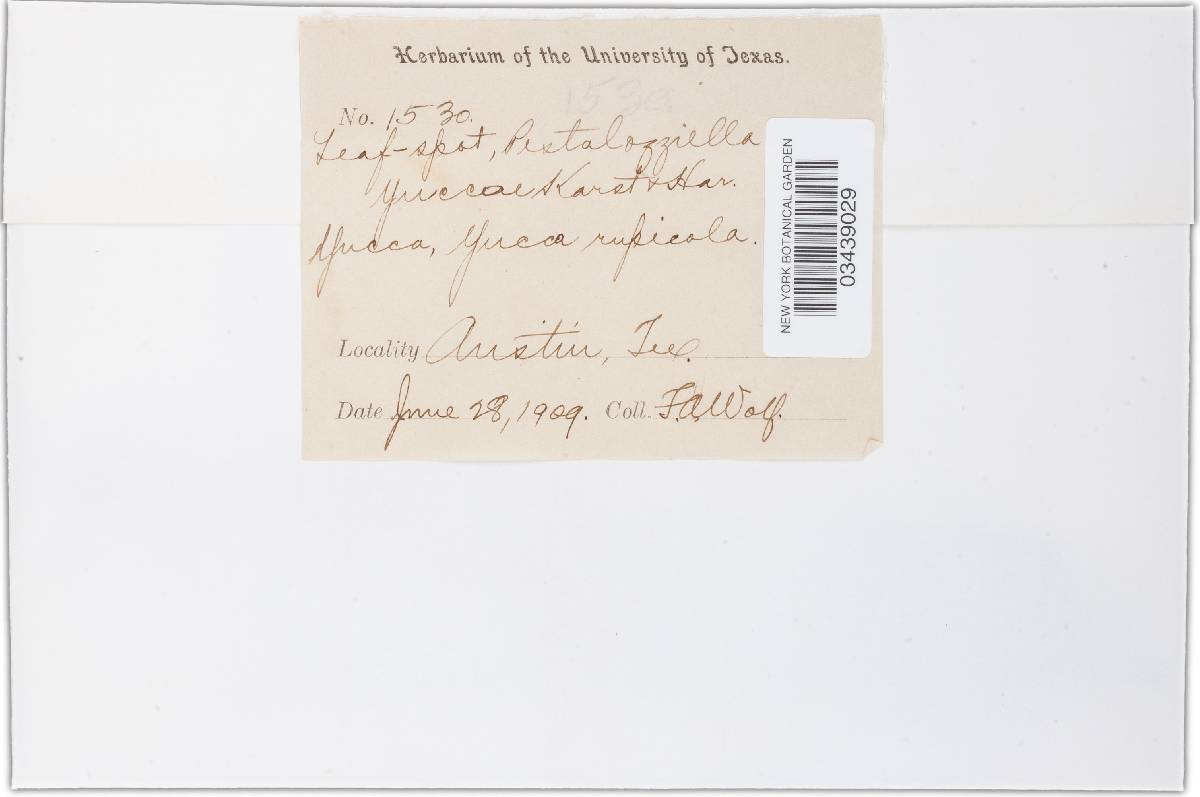 Herbarium of the University of Texas.
1530.
No. 1530.
Leaf-spot, Pestalozziella
Yuccae Karst & Har.
Yucca, Yucca rupicola.
Locality Austin, Tex.
Date June 28, 1909. Coll. F.A. Wolf.
NEW YORK BOTANICAL GARDEN
03439029